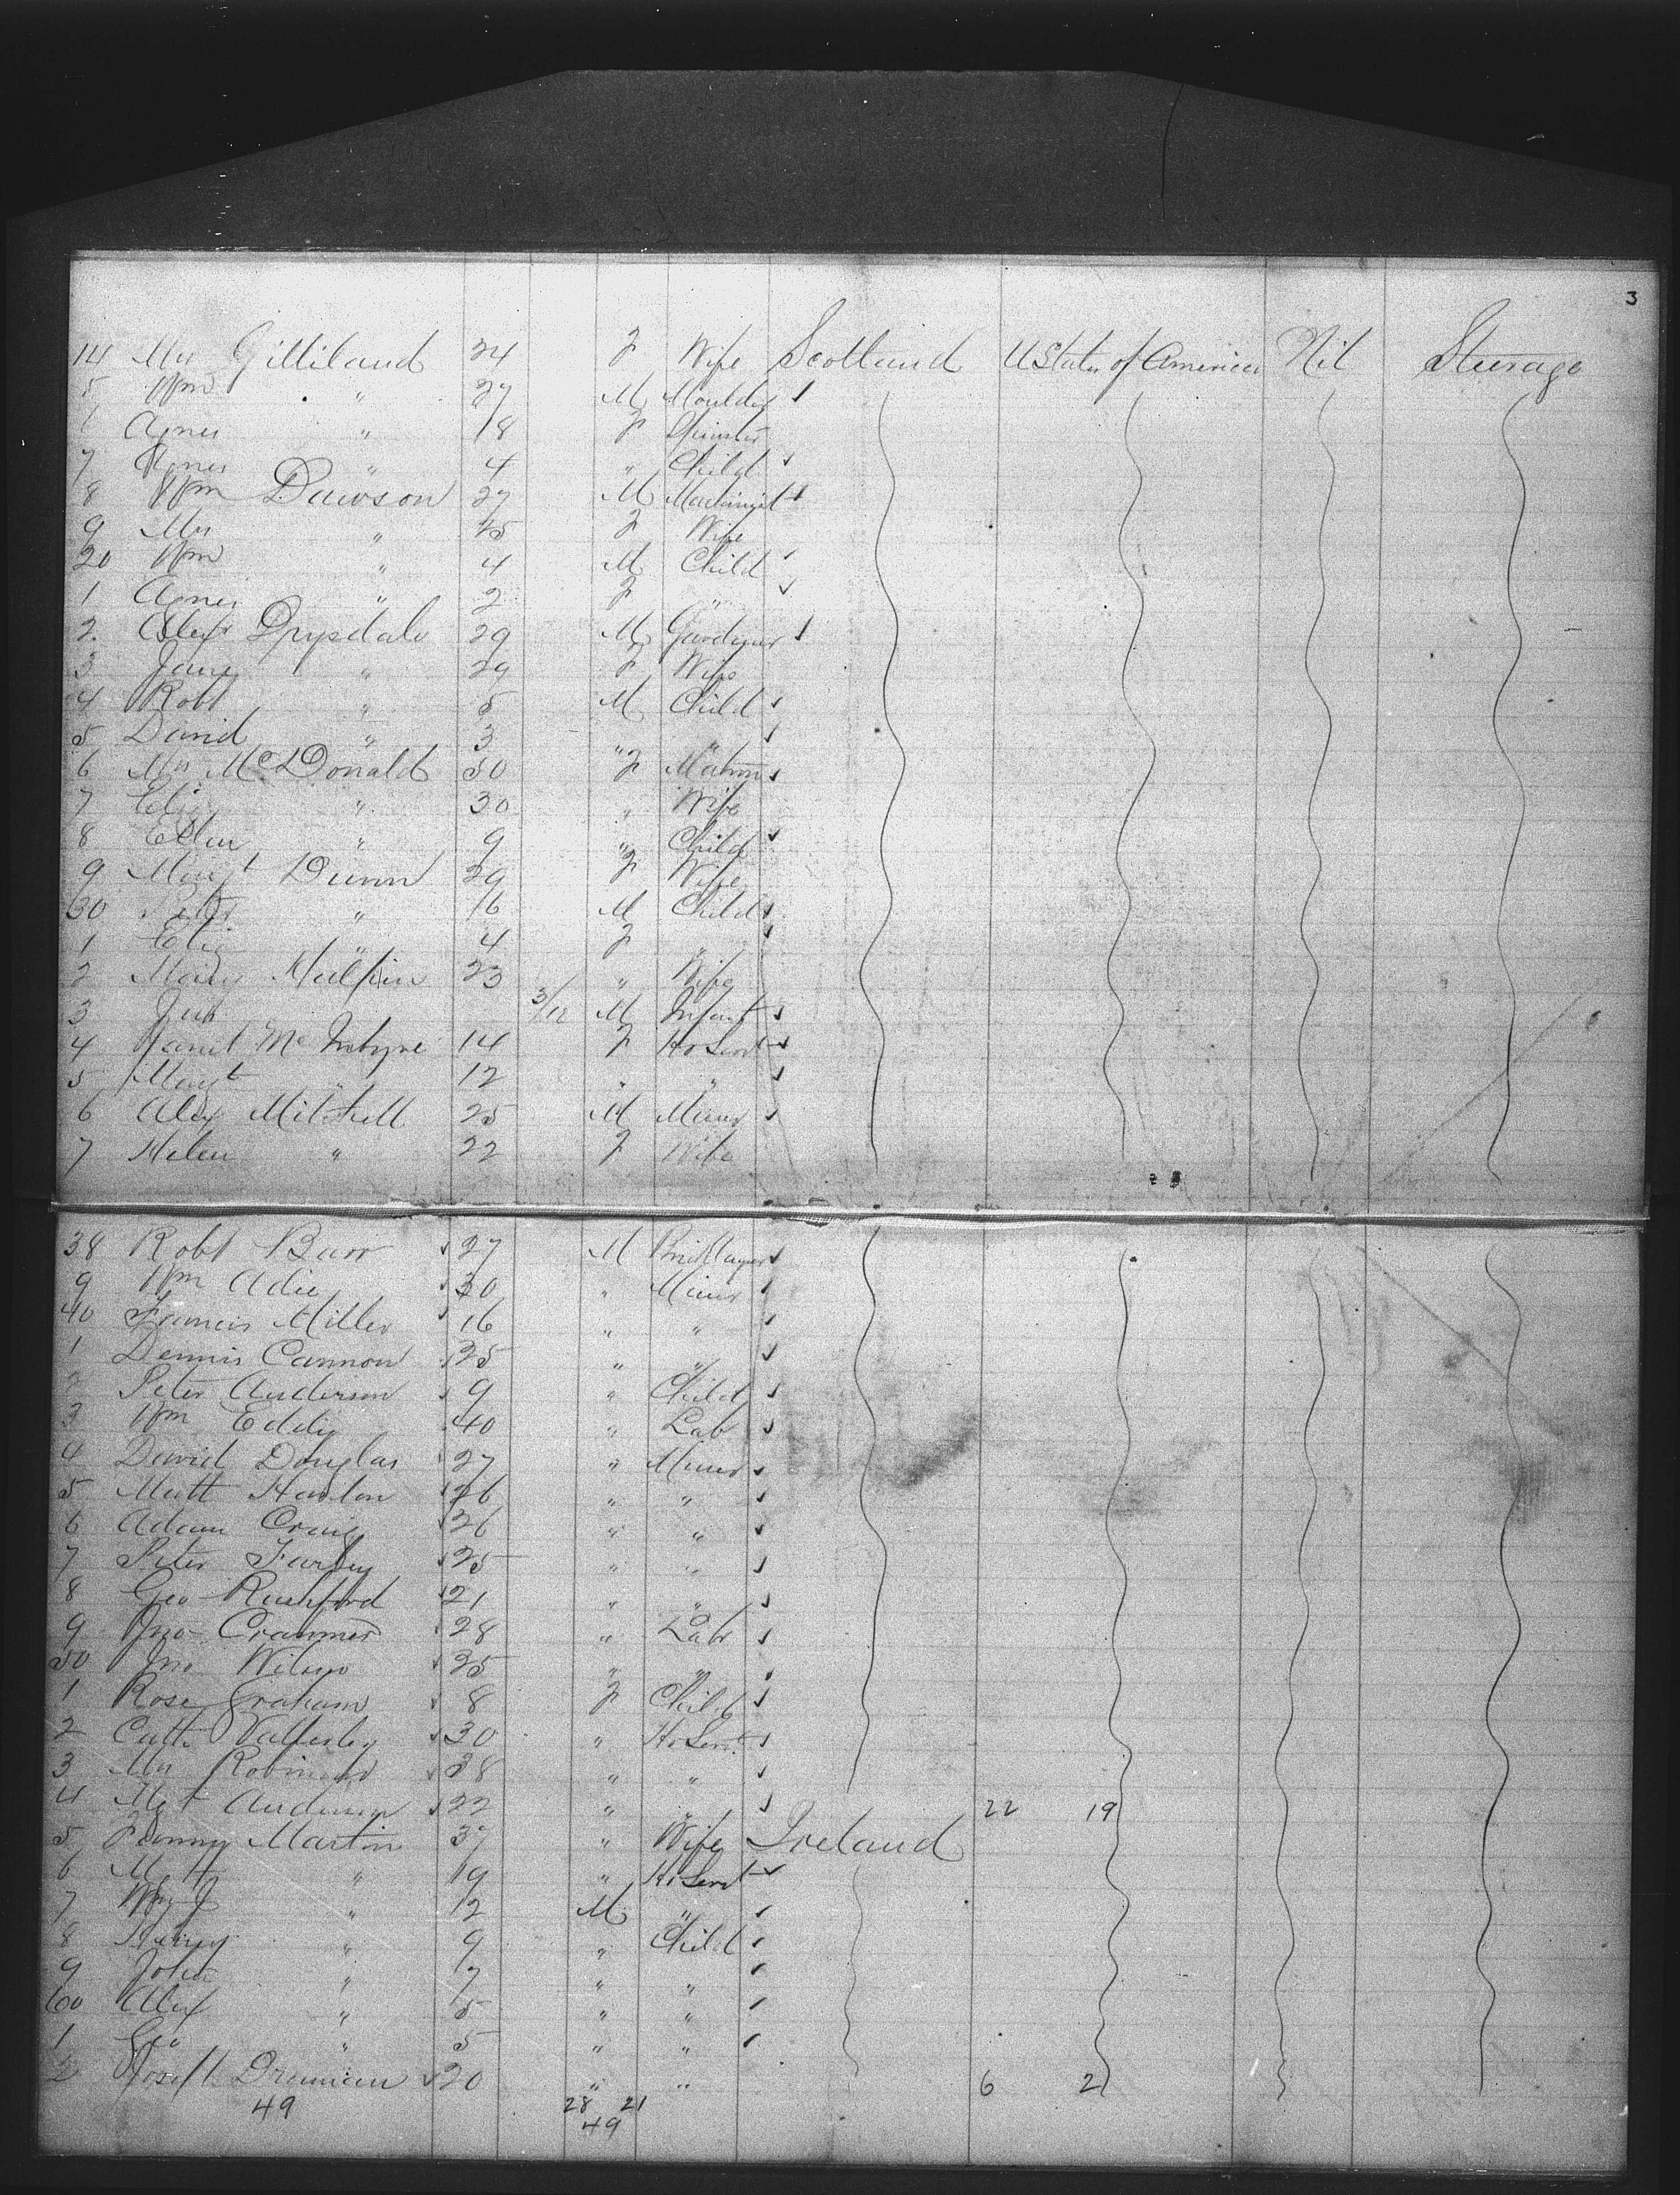 3
14 Mrs Gilliland 24 F Wife Scotland U States of America Nil Steerage
5 Wm " 27 M Moulder
Agnes " 18 F Spinster
7 Agnes " 4 " Child
8 Wm Dawson 27 M Machinist
9 Mrs " 25 F Wife
20 Wm " 4 M Child
1 Agnes " 2 F "
2 Alexr Drysdale 29 M Gardener
3 Jane " 29 F Wife
4 Robt " 5 M Child
5 David " 3 " "
6 Mrs McDonald 50 F Matron
7 Eliz " 30 " Wife
8 Ellen " 9 " Child
9 Margt Dunn 29 F Wife
30 Peter " 16 M Child
1 Eliz " 4 F "
2 Mary Halpin 23 " Wife
3 3/12 M Infant
4 Janet McIntyre 14 F Ho Servt
5 Margt " 12 " "
6 Alex Mitchell 25 M Miner
7 Helen " 22 F Wife
38 Robt Barr 27 M Bricklayer
9 Wm Adie 30 " Miner
40 Francis Miller 16 " "
1 Dennis Cannon 25 " "
2 Peter Anderson 9 " Child
3 Wm Eddie 40 " Lab
4 David Douglas 27 " Miner
5 Matt Hanlon 26 " "
6 Adam Craig 26 " "
7 Peter Farley 25 " "
8 Geo Rushford 21 " "
9 Jno Crammer 28 " Labr
50 Jno Wilson 25 " "
1 Rose Graham 8 F Child
2 Cath 30 " Ho Servt
3 Mrs Robinson 38 " "
4 Mgt Anderson 22 " " 22 19
5 Fanny Martin 37 " Wife Ireland
6 " 19 " Ho Servt
7 Wm J " 12 M "
8 Henry " 9 " Child
9 John " 7 " "
60 Alex " 5 " "
1 Geo " 5 " "
2 20 " " 6 2
49 28 21
49